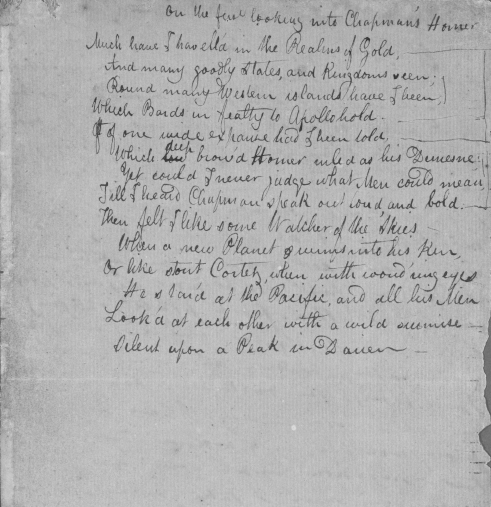 On the first looking into Chapman's Homer
Much have I travell'd in the Realms of Gold,
And many goodly States, and Kingdoms seen;
Round many Western islands have I been,
Which Bards in fealty to Apollo hold.
Of one wide expanse had I been told,
Which low deep brow'd Homer ruled as his Demesne:
Yet could I never judge what Men could mean,
Till I heard Chapman speak out loud and bold.
Then felt I like some Watcher of the Skies
When a new Planet swims into his Ken,
Or like stout Cortez, when with wond'ring eyes
He star'd at the Pacific, and all his Men
Look'd at each other with a wild surmise
Silent upon a Peak in Darien